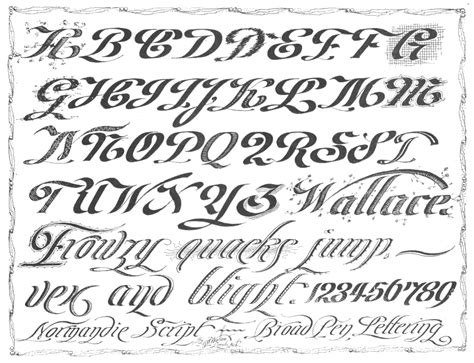 A B C D E F F G
G H I I J K L M M
N N O P Q 2 R S S T
T U W X Y Z Wallace.
Frowzy quacks jump
vex and blight. 1234567890
Normandie Script Broad Pen Lettering